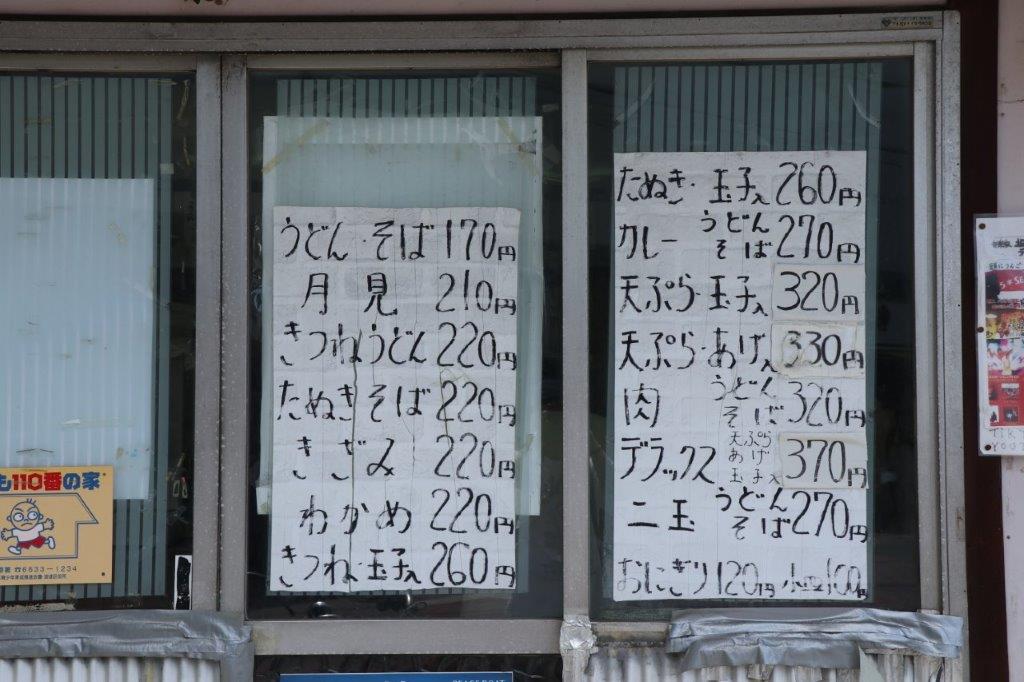 うどん・そば170円
月見 210円
きつねうどん220円
たぬきそば220円
きざみ 220円
わかめ 220円
きつね・玉子入260円
たぬき・玉子入260円
カレー うどん そば 270円
天ぷら・玉子入320円
天ぷら・あげ入330円
肉 うどん そば 320円
デラックス 天ぷら あげ 玉子入 370円
二玉 うどん そば 270円
おにぎり120円 100円
も110番の家
☎6533-1234